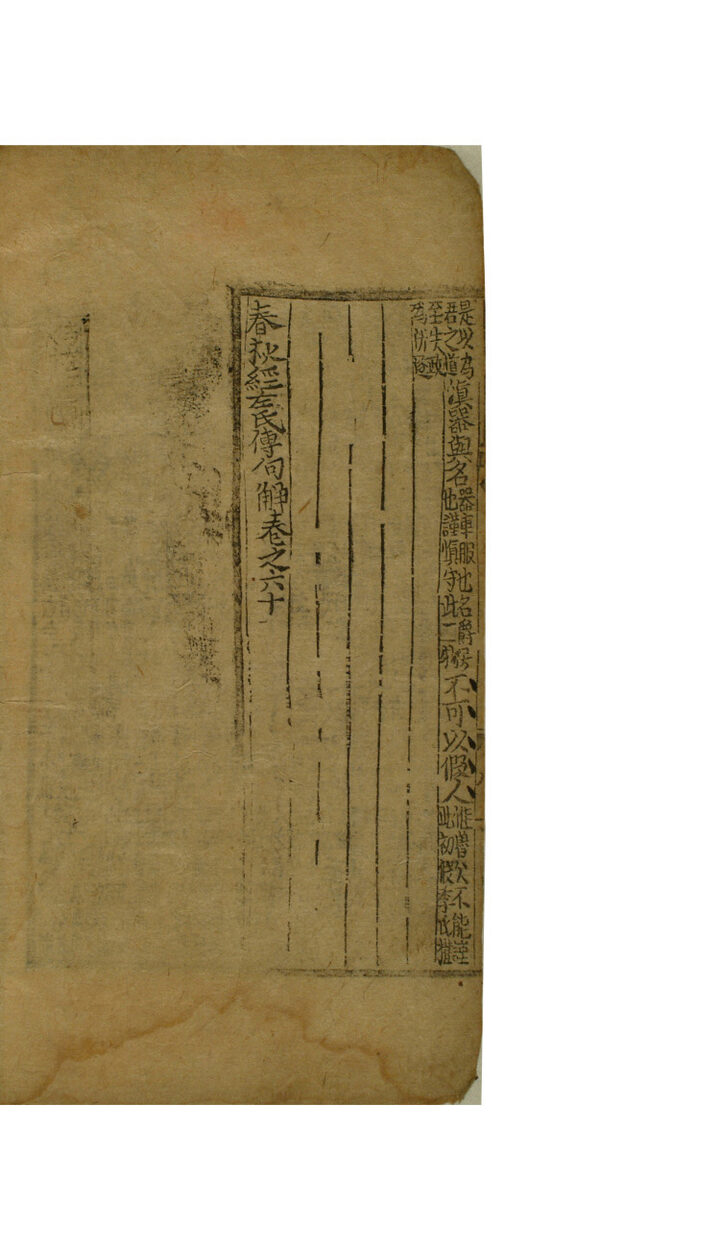 是以為君之道慎器與名器車服也名爵號也謹慎守此二物不可以假人不能謹此初假季氏權
至失政為所逐
春秋經左氏傳句解卷之六十